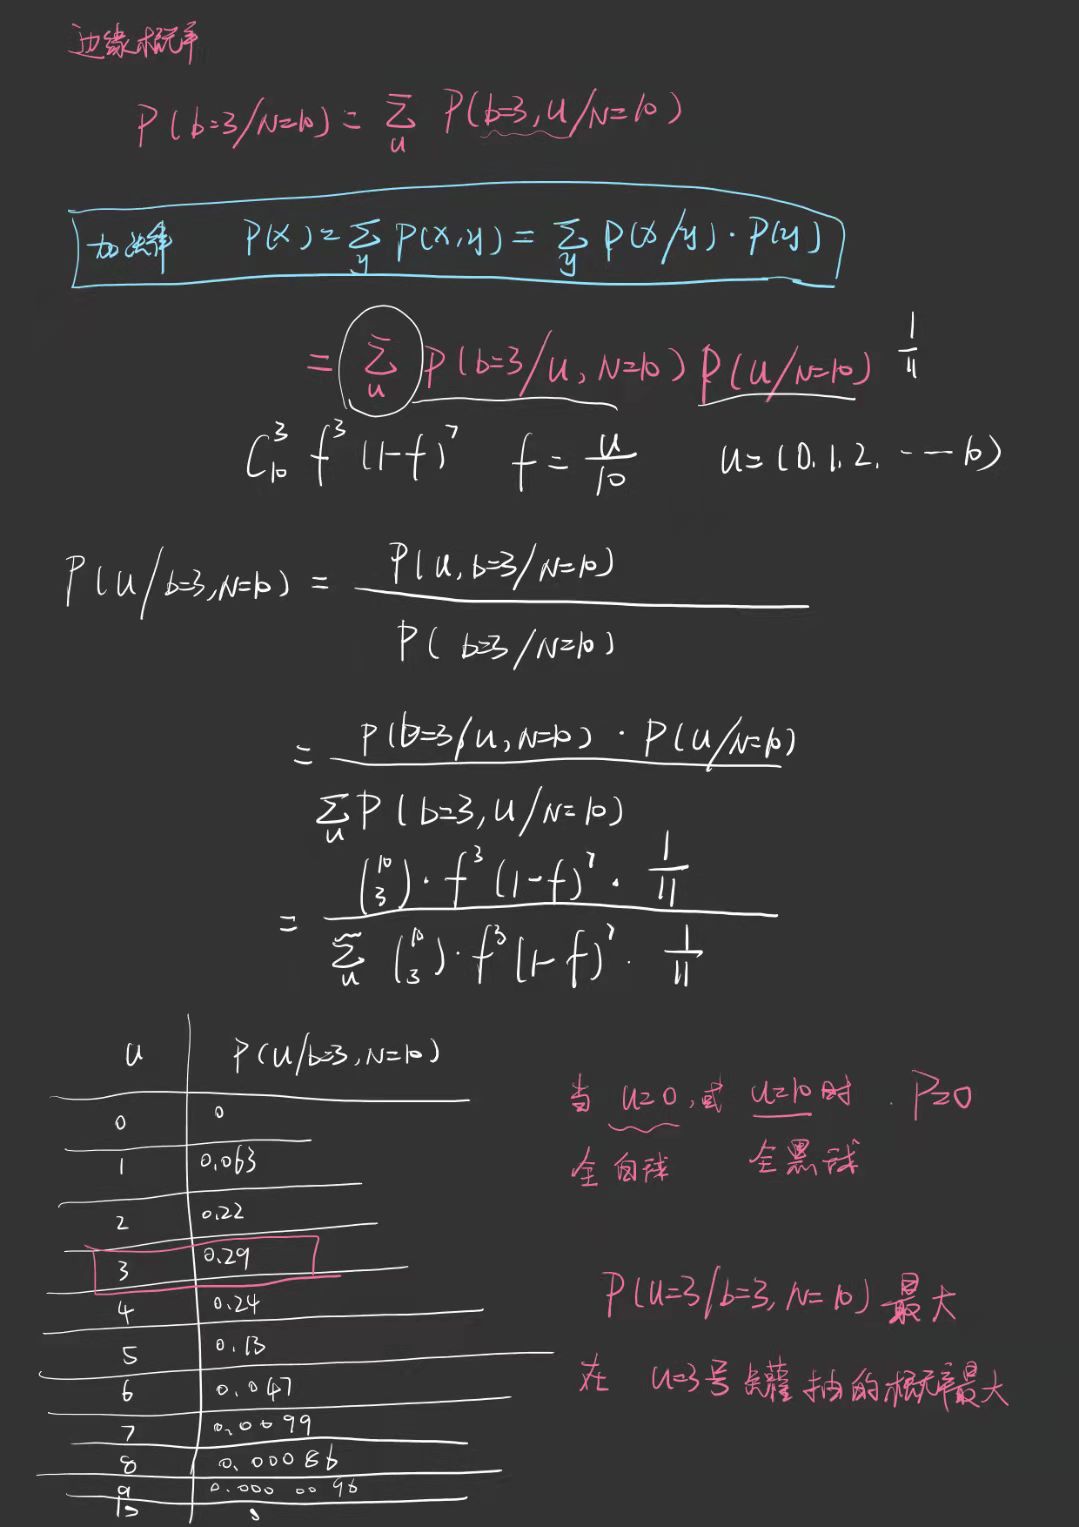 边缘概率
P(b=3/N=10) = Σ_u P(b=3,u/N=10)
加法律 P(x) = Σ_y P(x,y) = Σ_y P(x/y)·P(y)
= Σ_u P(b=3/u,N=10) P(u/N=10) 1/11
C_10^3 f^3 (1-f)^7 f = u/10 u=(0.1.2.----10)
P(u/b=3,N=10) = P(u,b=3/N=10) / P(b=3/N=10)
= P(b=3/u,N=10)·P(u/N=10) / Σ_u P(b=3,u/N=10)
= (10 3)·f^3(1-f)^7·1/11 / Σ_u (10 3)·f^3(1-f)^7·1/11
u P(u/b=3,N=10)
0 0
1 0.063
2 0.22
3 0.29
4 0.24
5 0.13
6 0.047
7 0.0099
8 0.00086
9 0.0000096
10 0
当 u=0,或 u=10时.P=0
全白球 全黑球
P(u=3/b=3,N=10)最大
在 u=3号罐抽的概率最大